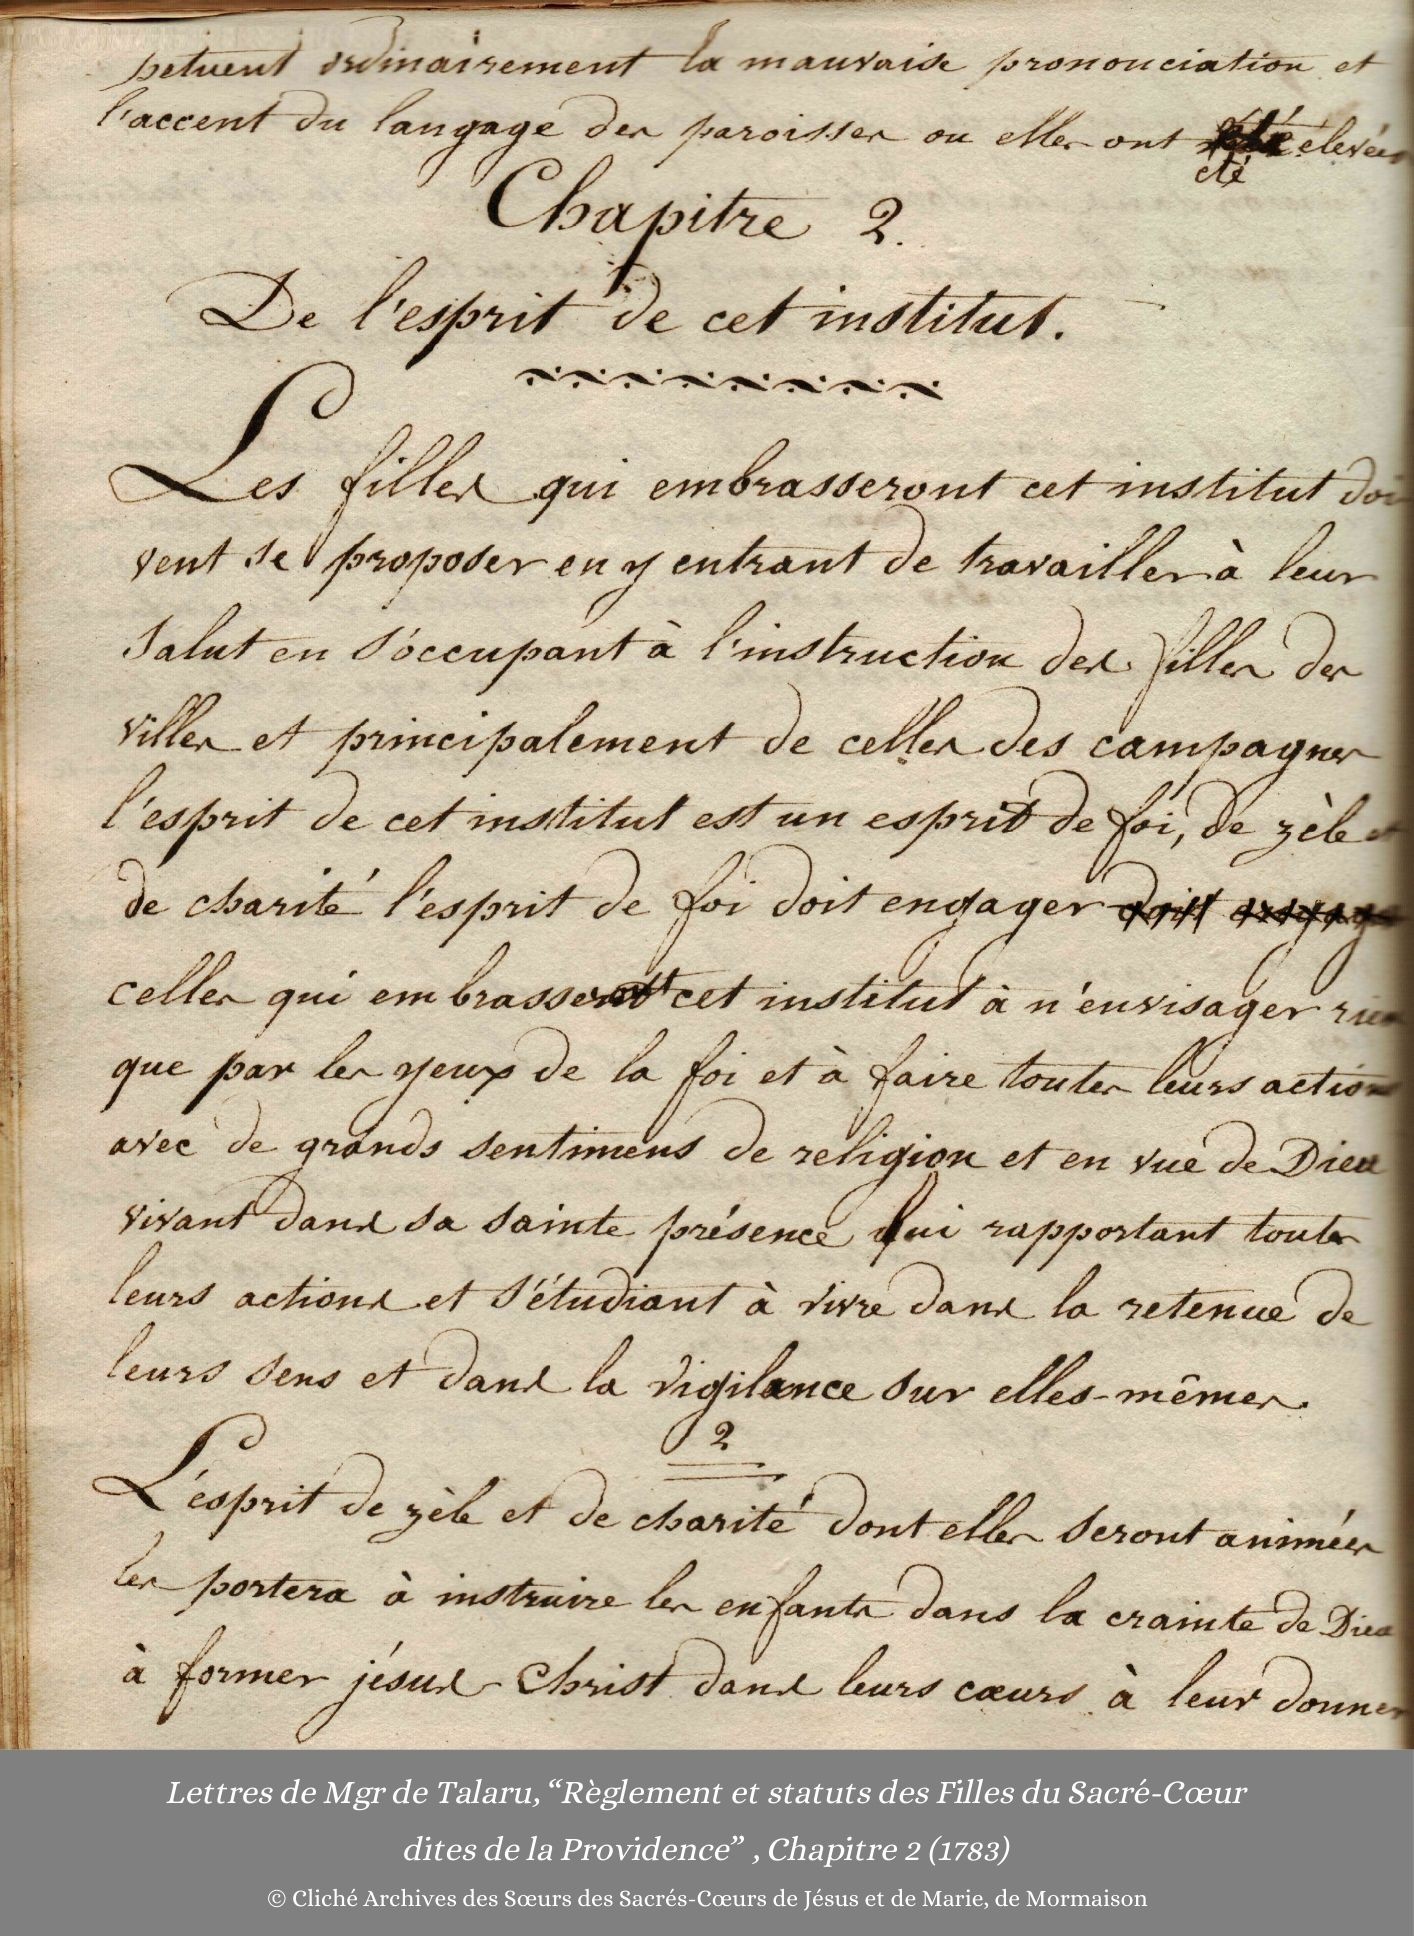 petuent ordinairement la mauvaise prononciation et
l'accent du langage des paroisses ou elles ont élevées
été
Chapitre 2.
De l'esprit de cet institut.
Les filles qui embrasseront cet institut doi
vent se proposer en y entrant de travailler à leur
salut en s'occupant à l'instruction des filles des
villes et principalement de celles des campagnes
l'esprit de cet institut est un esprit de foi, de zèle et
de charité l'esprit de foi doit engager doit engager
celles qui embrassent cet institut à n'envisager rien
que par les yeux de la foi et à faire toutes leurs actions
avec de grands sentimens de religion et en vue de Dieu
vivant dans sa sainte présence lui rapportant toutes
leurs actions et s'étudiant à vivre dans la retenue de
leurs sens et dans la vigilance sur elles-mêmes.
2
L'esprit de zèle et de charité dont elles seront animées
les portera à instruire les enfants dans la crainte de Dieu
à former jésus Christ dans leurs cœurs à leur donner
Lettres de Mgr de Talaru, “Règlement et statuts des Filles du Sacré-Cœur
dites de la Providence” , Chapitre 2 (1783)
© Cliché Archives des Sœurs des Sacrés-Cœurs de Jésus et de Marie, de Mormaison